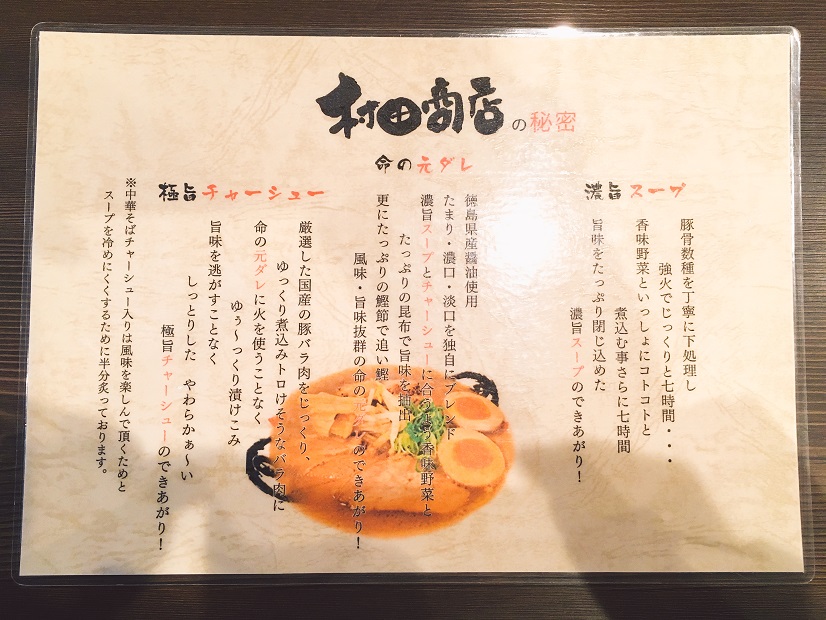 村田商店の秘密
濃旨スープ
豚骨数種を丁寧に下処理し
強火でじっくりと七時間・・・
香味野菜といっしょにコトコトと
煮込む事さらに七時間
旨味をたっぷり閉じ込めた
濃旨スープのできあがり！
命の元ダレ
徳島県産醤油使用
たまり・濃口・淡口を独自にブレンド
濃旨スープとチャーシューに合うよう香味野菜と
たっぷりの昆布で旨味を抽出
更にたっぷりの鰹節で追い鰹
風味・旨味抜群の命の元ダレのできあがり！
極旨チャーシュー
厳選した国産の豚バラ肉をじっくり、
ゆっくり煮込みトロけそうなバラ肉に
命の元ダレに火を使うことなく
ゆぅ〜っくり漬けこみ
旨味を逃がすことなく
しっとりした やわらかぁ〜い
極旨チャーシューのできあがり！
※中華そばチャーシュー入りは風味を楽しんで頂くためと
スープを冷めにくくするために半分炙っております。